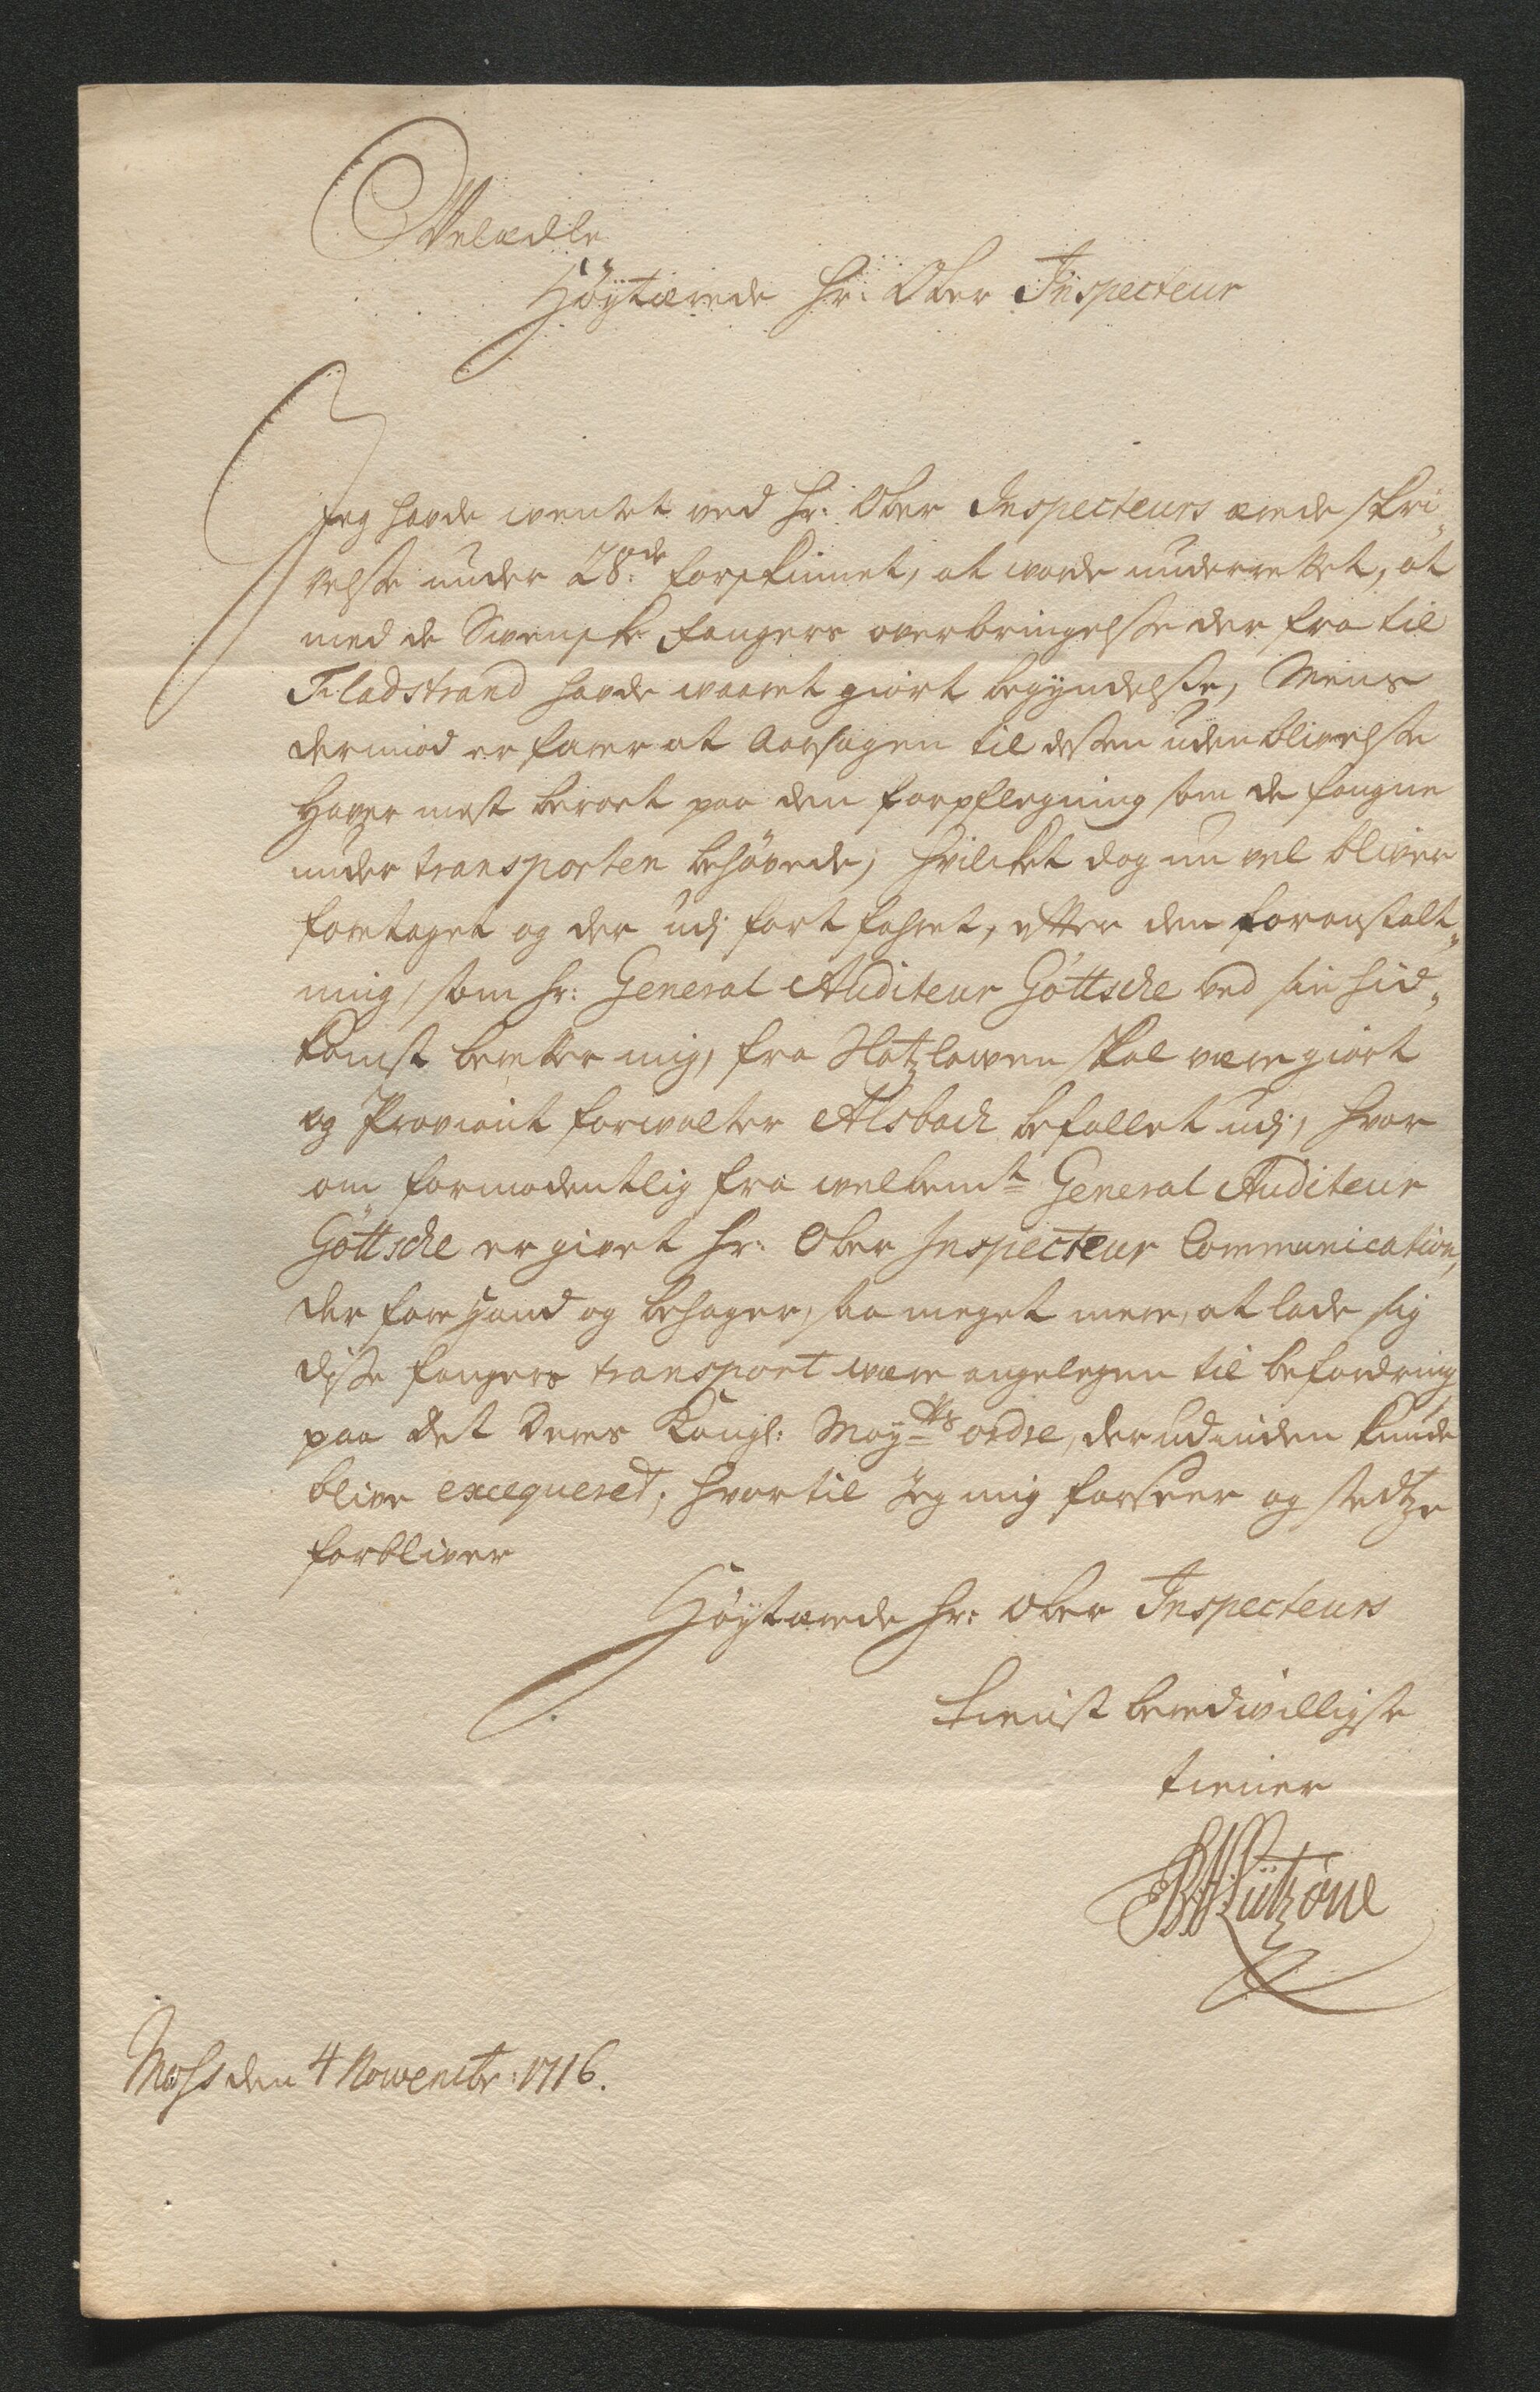 Velædle
Höÿtærede Hr: Ober Inspecteur
Jeg hafde wentet ved Hr: Ober Inspecteurs ærede skri„
velsse under 28:de forskinnet, at worde underrettet, at
med de Svenske Fangers overbringelsse der fra til
Fladstrand hafde waaret giort begyndelsse, Mens
dermod erfarer at Aarsagen til dessen udenblivelsse
Hafver mest beroet paa den forpflegning som de fangne
under transporten behøvede; hvilcket dog nu vel bliver
foretaget og der udj fort fahret, effter den foranstalt„
ning, som Hr: General Auditeur Göttsche ved sin hid„
komst beretter mig, fra Slotzlowen skal være giort
og Proviant forwalter Alsbach befallet udj, hvor
om formodentlig fra welbemte General Auditeur
Göttsche er givet Hr: Ober Inspecteur Communication,
der fore Hand og behager, saa meget mere, at lade sig
disse fangers transport være angelegen til befordring
paa det Deres Kongl: Maytts ordre, der ud inden kunde
blive exequeret; hvortil Jeg mig forseer og stedtze
forbliver
Höÿtærede Hr: Ober Inspecteurs
tienst beredwilligste
tiener
BHLützöwe
Moss den 4 Novembr: 1716.